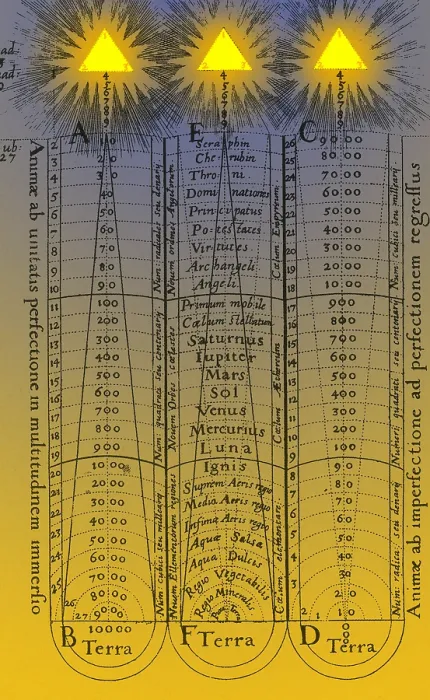 ub:
27
A E C
Animæ ab unitatis perfectione in multitudinem immersio
2
3
4
5
6
7
8
9
10
11
12
13
14
15
16
17
18
19
20
21
22
23
24
25
26
27
30
40
50
60
70
80
90
100
200
300
400
500
600
700
800
900
1000
2000
3000
4000
5000
6000
7000
8000
9000
10000
Num: radicales seu denary
Num: quadrati seu centenary
Num: cubici seu milleary
Novem ordines Angelorum
Novem Orbes cœlestes
Novem Elementorum regiones
Seraphin
Cherubin
Throni
Dominationes
Principatus
Potestates
Virtutes
Archangeli
Angeli
Primum mobile
Cœlum stellatum
Saturnus
Iupiter
Mars
Sol
Venus
Mercurius
Luna
Ignis
Suprem Aeris regio
Media Aeris regio
Infima Aeris regio
Aqua Salsa
Aqua Dulcis
Regio Vegetabilis
Regio Mineralis
Terra
Cœlum Empyreum
Cœlum Æthereum
Cœlum elementare
26
25
24
23
22
21
20
19
18
17
16
15
14
13
12
11
10
9
8
7
6
5
4
3
2
1
9000
8000
7000
6000
5000
4000
3000
2000
1000
900
800
700
600
500
400
300
200
100
90
80
70
60
50
40
30
20
10
Num: cubici seu milleary
Numeri quadrati seu centenary
Num: radica: seu denary
Animæ ab imperfectione ad perfectionem regressus
B Terra
F Terra
D Terra